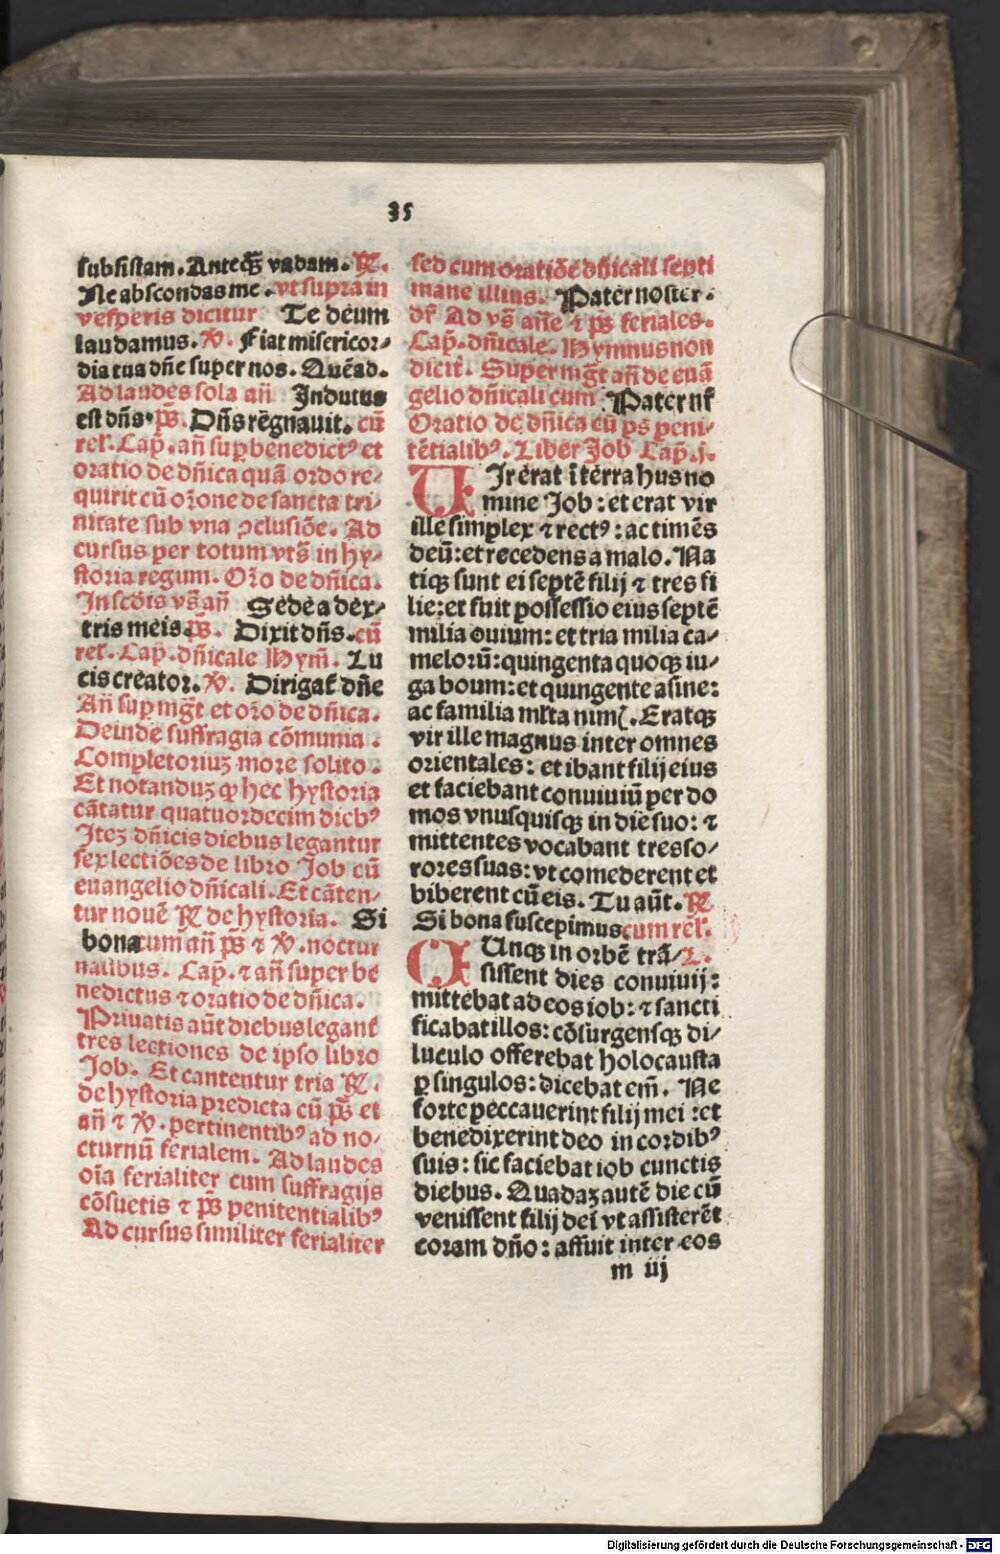 35
subsistam. Anteqꝫ̃ vadam. ℟.
Ne abscondas me. vt supra in
vesperis dicitur Te deum
laudamus. ℣. Fiat misericor⸗
dia tua dñe super nos. Quēad.
Ad laudes sola añ Indutus
est dñs. p̃s. Dñs regnauit. cū
rel'. Cap̃. añ sup̱ benedictꝰ et
oratio de dñica quā ordo re⸗
quirit cū or̃one de sancta tri⸗
nitate sub vna ꝯclusiōe. Ad
cursus per totum vts̃ in hy⸗
storia regum. Or̃o de dñica.
In scd̃is vs̃ añ Sede a dex⸗
tris meis. p̃s. Dixit dñs. cū
rel'. Cap̃. dñicale Hym̃. Lu
cis creator. ℣. Dirigat̃ dñe
Añ sup̱ mg̃t et or̃o de dñica.
Deinde suffragia cōmunia.
Completoriuꝫ more solito.
Et notanduꝫ ꝙ hec hystoria
cātatur quatuordecim diebꝰ
Iteꝫ dñicis diebus legantur
sex lectiōes de libro Job cū
euangelio dñicali. Et cāten⸗
tur nouē ℟ de hystoria. Si
bona cum añ p̃s ⁊ ℣. noctur
nalibus. Cap̃. ⁊ añ super be
nedictus ⁊ oratio de dñica.
Priuatis aūt diebus legant̃
tres lectiones de ipso libro
Job. Et cantentur tria ℟.
de hystoria predicta cū p̃s et
añ ⁊ ℣. pertinentibꝰ ad no⸗
cturnū ferialem. Ad laudes
oīa ferialiter cum suffragijs
cōsuetis ⁊ p̃s penitentialibꝰ
Ad cursus similiter ferialiter
sed cum oratiōe dñicali septi
mane illius. Pater noster.
dr̃ Ad vs̃ añe ⁊ p̃s feriales.
Cap̃. dñicale. Hymnus non
dicit̃. Super mg̃t añ de euā
gelio dñicali cum Pater nr̃
Oratio de dñica cū ps peni⸗
tētialibꝰ. Liber Job Cap̃. j.
VIr erat ī terra hus no
mine Job: et erat vir
ille simplex ⁊ rectꝰ: ac timēs
deū: et recedens a malo. Na
tiqꝫ sunt ei septē filij ⁊ tres fi
lie: et fuit possessio eius septē
milia ouium: et tria milia ca⸗
melorū: quingenta quoqꝫ iu⸗
ga boum: et quingente asine:
ac familia ml̃ta nimꝭ. Eratqꝫ
vir ille magnus inter omnes
orientales: et ibant filij eius
et faciebant conuiuiū per do
mos vnusquisqꝫ in die suo: ⁊
mittentes vocabant tres so⸗
rores suas: vt comederent et
biberent cū eis. Tu aūt. ℟
Si bona suscepimus cum rel'.
CUnqꝫ in orbē trā⸗ L.
sissent dies conuiuij:
mittebat ad eos iob: ⁊ sancti
ficabat illos: cōsurgensqꝫ di⸗
luculo offerebat holocausta
ꝑ singulos: dicebat em̃. Ne
forte peccauerint filij mei: et
benedixerint deo in cordibꝰ
suis: sic faciebat iob cunctis
diebus. Quadaꝫ autē die cū
venissent filij dei vt assisterēt
coram dño: affuit inter eos
m iij
Digitalisierung gefördert durch die Deutsche Forschungsgemeinschaft - DFG